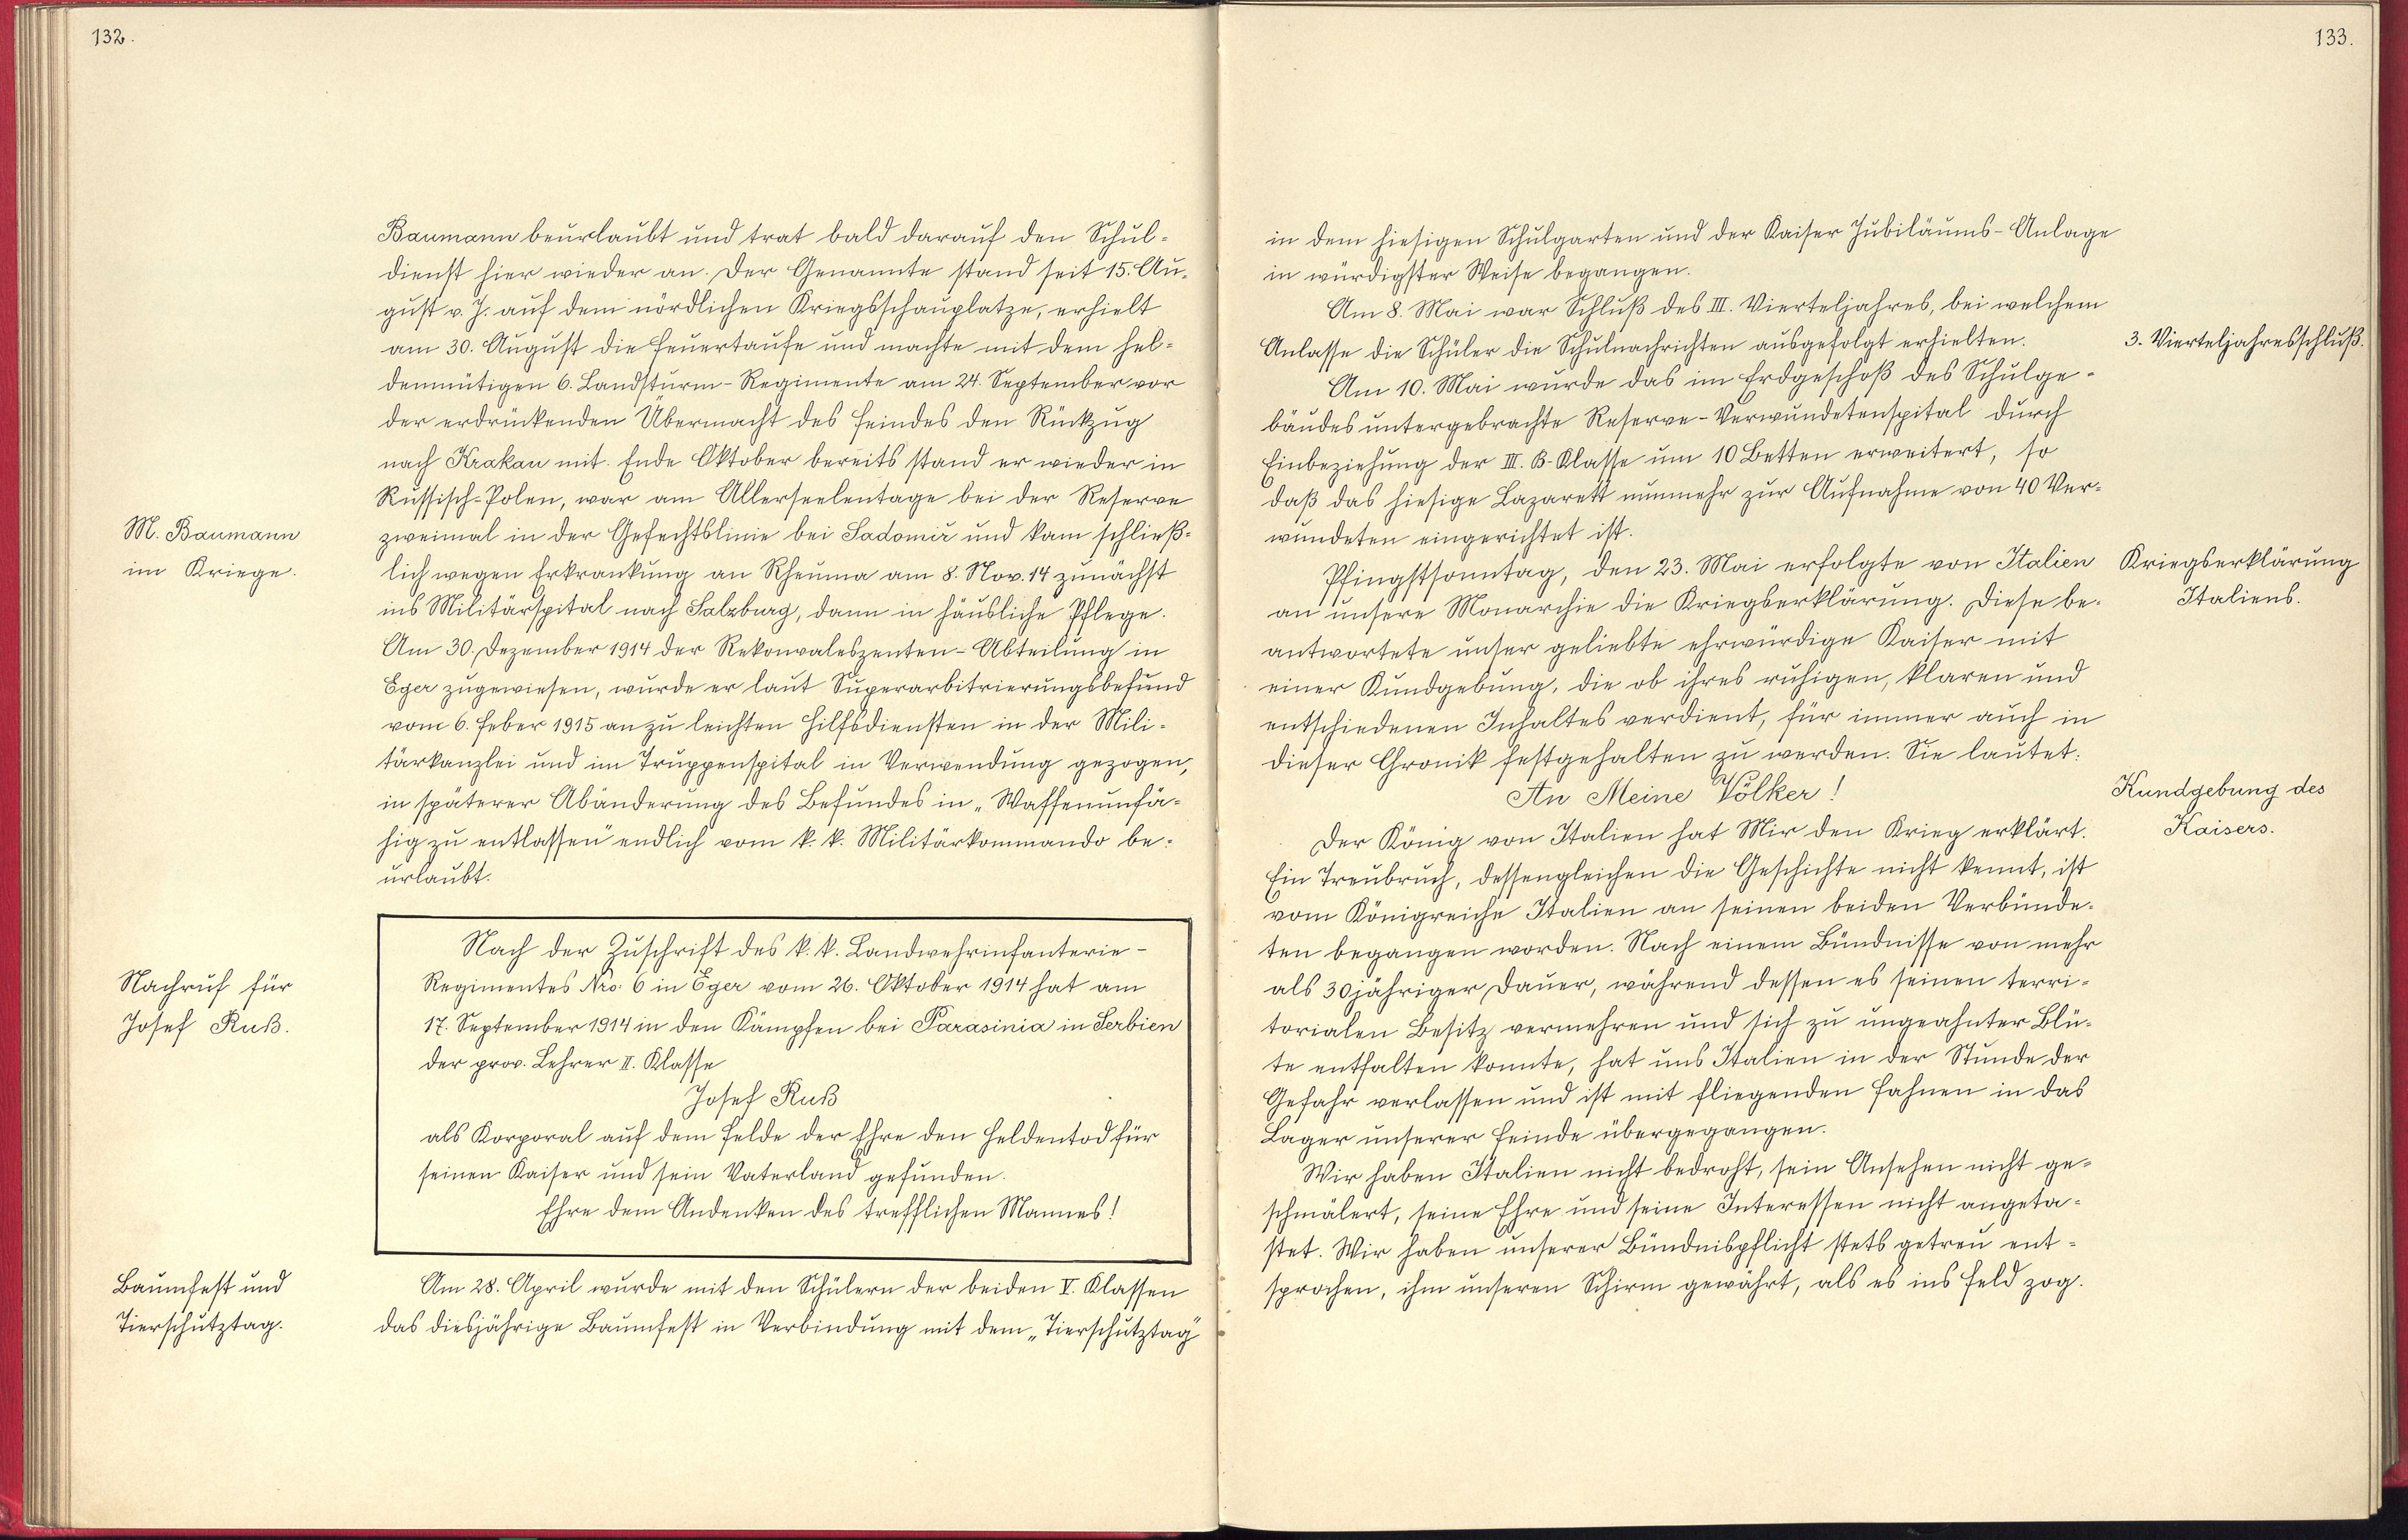 132.
Baumann beurlaubt und trat bald darauf den Schul-
dienst hier wieder an. Der Genannte stand seit 15. Au-
gust v. J. auf dem nördlichen Kriegsschauplatze, erhielt
am 30. August die Feuertaufe und machte mit dem hel-
denmütigen 6. Landsturm-Regimente am 24. September vor
der erdrückenden Übermacht des Feindes den Rückzug
nach Krakau mit. Ende Oktober bereits stand er wieder in
Russisch-Polen, war am Allerseelentage bei der Reserve
M. Baumann
im Kriege.
zweimal in der Gefechtslinie bei Sadomir und kam schließ-
lich wegen Erkrankung an Rheuma am 8. Nov. 14 zunächst
ins Militärspital nach Salzburg, dann in häusliche Pflege.
Am 30. Dezember 1914 der Rekonvaleszenten-Abteilung in
Eger zugewiesen, wurde er laut Superarbitrierungsbefund
vom 6. Feber 1915 an zu leichten Hilfsdiensten in der Mili-
tärkanzlei und im Truppenspital in Verwendung gezogen,
in späterer Abänderung des Befundes in „Waffenunfä-
hig zu entlassen" endlich vom k. k. Militärkommando be-
urlaubt.
Nachruf für
Josef Ruß.
Nach der Zuschrift des k. k. Landwehrinfanterie-
Regimentes Nro. 6 in Eger vom 26. Oktober 1914 hat am
17. September 1914 in den Kämpfen bei Parasinia in Serbien
der prov. Lehrer II. Klasse
Josef Ruß
als Korporal auf dem Felde der Ehre den Heldentod für
seinen Kaiser und sein Vaterland gefunden.
Ehre dem Andenken des trefflichen Mannes!
Baumfest und
Tierschutztag.
Am 28. April wurde mit den Schülern der beiden V. Klassen
das diesjährige Baumfest in Verbindung mit dem „Tierschutztag"
133.
in dem hiesigen Schulgarten und der Kaiser Jubiläums-Anlage
in würdigster Weise begangen.
Am 8. Mai war Schluß des III. Vierteljahres, bei welchem
Anlasse die Schüler die Schulnachrichten ausgefolgt erhielten.
3. Vierteljahresschluß.
Am 10. Mai wurde das im Erdgeschoß des Schulge-
bäudes untergebrachte Reserve-Verwundetenspital durch
Einbeziehung der III. B. Klasse um 10 Betten erweitert, so
daß das hiesige Lazarett nunmehr zur Aufnahme von 40 Ver-
wundeten eingerichtet ist.
Pfingstsonntag, den 23. Mai erfolgte von Italien
an unsere Monarchie die Kriegserklärung. Diese be-
Kriegserklärung
Italiens.
antwortete unser geliebte ehrwürdige Kaiser mit
einer Kundgebung, die ob ihres ruhigen, klaren und
entschiedenen Inhaltes verdient, für immer auch in
dieser Chronik festgehalten zu werden. Sie lautet:
An Meine Völker!
Kundgebung des
Kaisers.
Der König von Italien hat Mir den Krieg erklärt.
Ein Treubruch, dessengleichen die Geschichte nicht kennt, ist
vom Königreiche Italien an seinen beiden Verbünde-
ten begangen worden. Nach einem Bündnisse von mehr
als 30jähriger Dauer, während dessen es seinen terri-
torialen Besitz vermehren und sich zu ungeahnter Blü-
te entfalten konnte, hat uns Italien in der Stunde der
Gefahr verlassen und ist mit fliegenden Fahnen in das
Lager unserer Feinde übergegangen.
Wir haben Italien nicht bedroht, sein Ansehen nicht ge-
schmälert, seine Ehre und seine Interessen nicht angeta-
stet. Wir haben unserer Bündnispflicht stets getreu ent-
sprochen, ihm unseren Schirm gewährt, als es ins Feld zog.